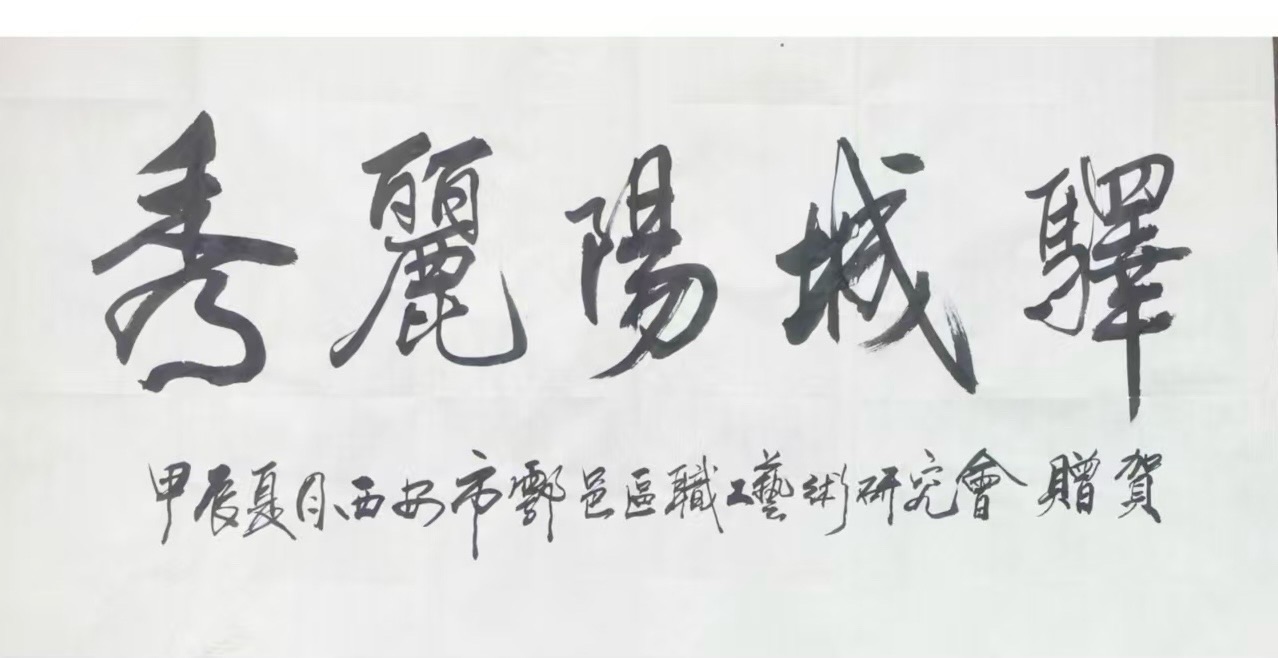 秀麗陽城驛
甲辰夏月西安市鄠邑區職工藝術研究會 贈賀